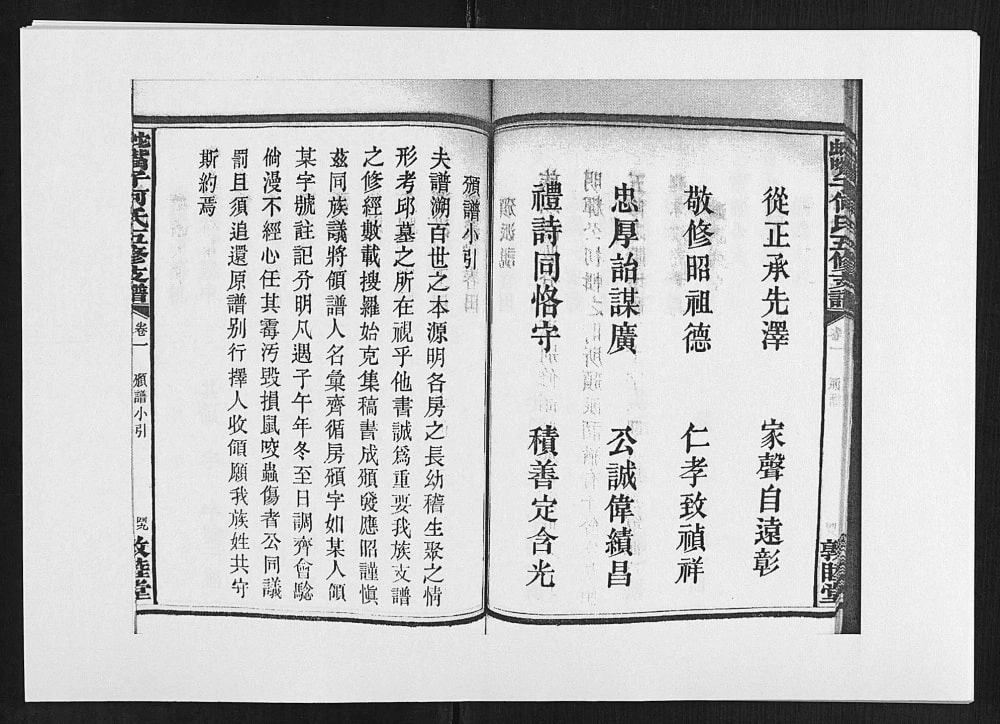 從正承先澤　家聲自遠彰
敬修昭祖德　仁孝致禎祥
忠厚詒謀廣　公誠偉績昌
禮詩同恪守　積善定含光
敦睦堂
頒譜小引
夫譜溯百世之本源明各房之長幼稽生聚之情
形考邱墓之所在視乎他書誠爲重要我族支譜
之修經數載搜羅始克集稿書成頒發應昭謹愼
兹同族議將領譜人名彙齊循房頒字如某人領
某字號註記分明凡遇子午年冬至日調齊會驗
倘漫不經心任其霉污毀損鼠咬蟲傷者公同議
罰且須追還原譜別行擇人收領願我族姓共守
斯約焉
何氏五修支譜
卷一
頒譜小引
敦睦堂